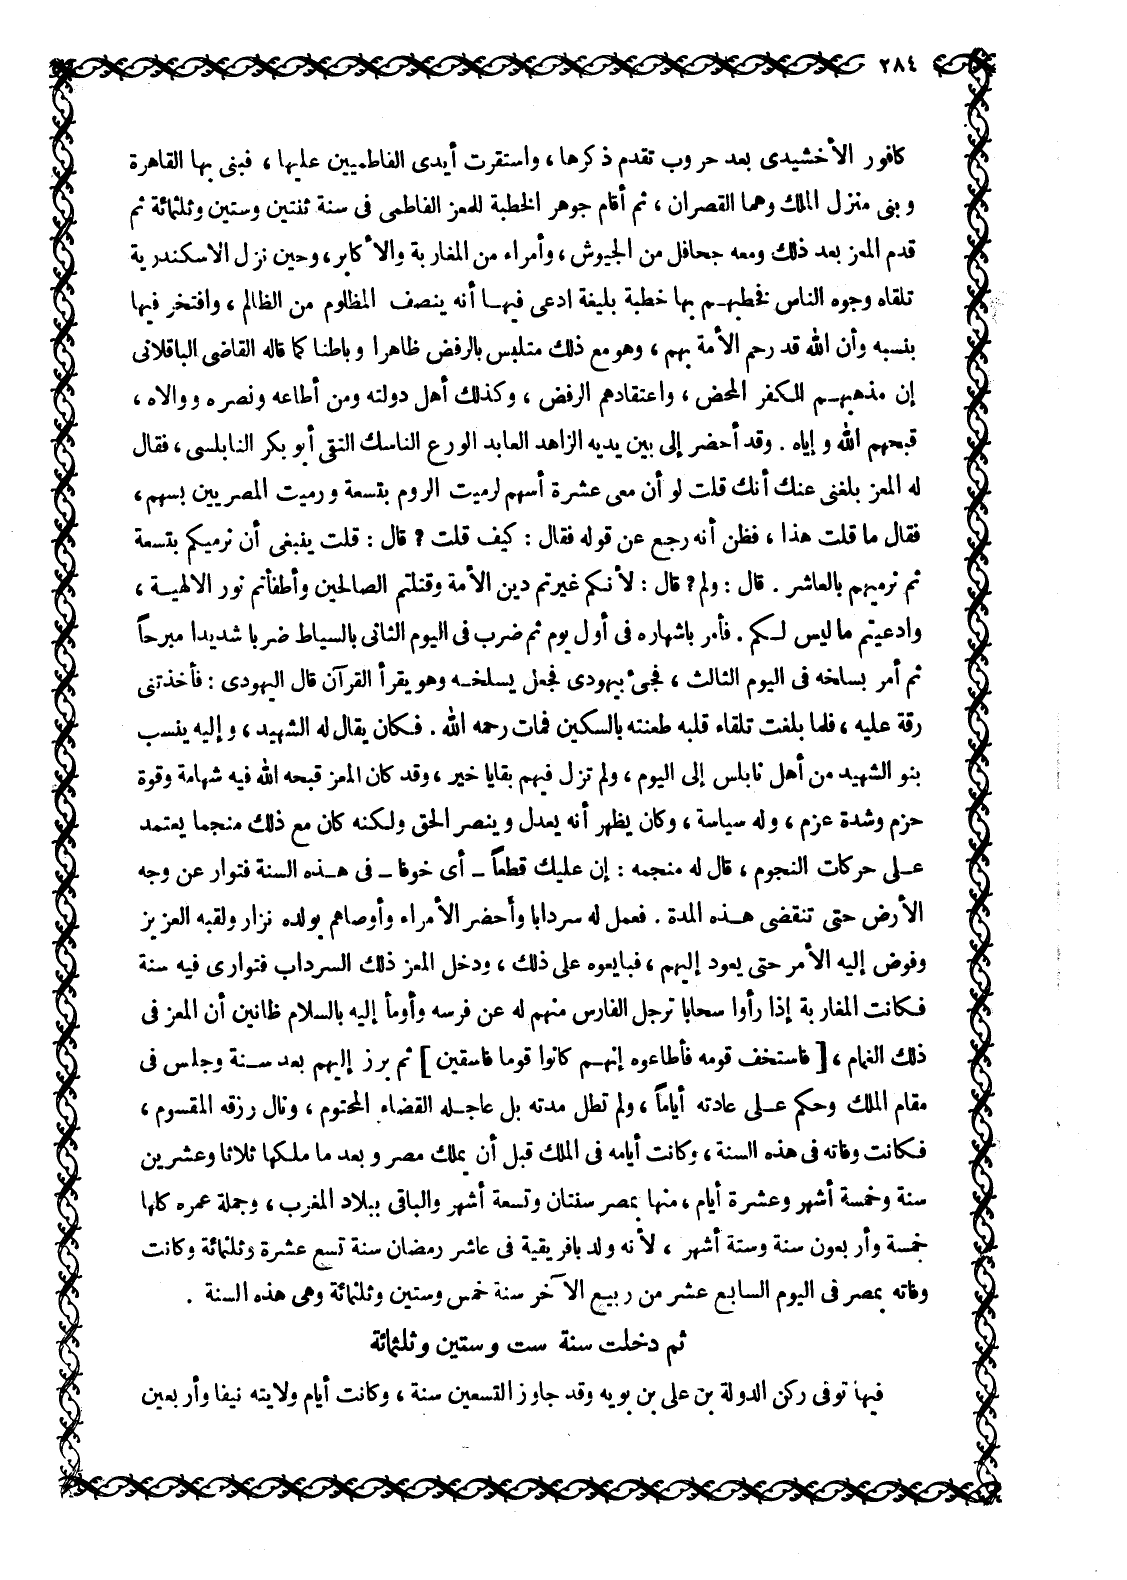 ٢٨٤
كافور الأخشيدى بعد حروب تقدم ذكرها ، واستقرت أيدى الفاطميين عليها ، فبنى بها القاهرة
وبنى منزل الملك وهما القصران ، ثم أقام جوهر الخطبة للمعز الفاطمى فى سنة ثنتين وستين وثلثمائة ثم
قدم المعز بعد ذلك ومعه جحافل من الجيوش ، وأمراء من المغاربة والأكابر ، وحين نزل الاسكندرية
تلقاه وجوه الناس فخطبهم بها خطبة بليغة ادعى فيها أنه ينصف المظلوم من الظالم ، وافتخر فيها
بنسبه وأن الله قد رحم الأمة بهم ، وهو مع ذلك متلبس بالرفض ظاهرا وباطنا كما قاله القاضى الباقلانى
إن مذهبهم الكفر المحض ، واعتقادهم الرفض ، وكذلك أهل دولته ومن أطاعه ونصره ووالاه ،
قبحهم الله وإياه . وقد أحضر إلى بين يديه الزاهد العابد الورع الناسك التقى أبو بكر النابلسى ، فقال
له المعز بلغنى عنك أنك قلت لو أن معى عشرة أسهم لرميت الروم بتسعة ورميت المصريين بسهم ،
فقال ما قلت هذا ، فظن أنه رجع عن قوله فقال : كيف قلت ? قال : قلت ينبغى أن نرميكم بتسعة
ثم نرميهم بالعاشر . قال : ولم ? قال : لأنكم غيرتم دين الأمة وقتلتم الصالحين وأطفأتم نور الالهية ،
وادعيتم ما ليس لكم . فأمر باشهاره فى أول يوم ثم ضرب فى اليوم الثانى بالسياط ضربا شديدا مبرحاً
ثم أمر بسلخه فى اليوم الثالث ، فجئ بيهودى فجعل يسلخه وهو يقرأ القرآن قال اليهودى : فأخذتنى
رقة عليه ، فلما بلغت تلقاء قلبه طعنته بالسكين فمات رحمه الله . فكان يقال له الشهيد ، وإليه ينسب
بنو الشهيد من أهل نابلس إلى اليوم ، ولم تزل فيهم بقايا خير ، وقد كان المعز قبحه الله فيه شهامة وقوة
حزم وشدة عزم ، وله سياسة ، وكان يظهر أنه يعدل وينصر الحق ولكنه كان مع ذلك منجما يعتمد
على حركات النجوم ، قال له منجمه : إن عليك قطعاً ـ أى خوفا ـ فى هذه السنة فتوار عن وجه
الأرض حتى تنقضى هذه المدة . فعمل له سردابا وأحضر الأمراء وأوصاهم بولده نزار ولقبه العزيز
وفوض إليه الأمر حتى يعود إليهم ، فبايعوه على ذلك ، ودخل المعز ذلك السرداب فتوارى فيه سنة
فكانت المغاربة إذا رأوا سحابا ترجل الفارس منهم له عن فرسه وأومأ إليه بالسلام ظانين أن المعز فى
ذلك الغمام ، [ فاستخف قومه فأطاعوه إنهم كانوا قوما فاسقين ] ثم برز إليهم بعد سنة وجلس فى
مقام الملك وحكم على عادته أياماً ، ولم تطل مدته بل عاجله القضاء المحتوم ، ونال رزقه المقسوم ،
فكانت وفاته فى هذه السنة ، وكانت أيامه فى الملك قبل أن يملك مصر وبعد ما ملكها ثلاثا وعشرين
سنة وخمسة أشهر وعشرة أيام ، منها بمصر سنتان وتسعة أشهر والباقى ببلاد المغرب ، وجملة عمره كلها
خمسة وأربعون سنة وستة أشهر ، لأنه ولد بافريقية فى عاشر رمضان سنة تسع عشرة وثلثمائة وكانت
وفاته بمصر فى اليوم السابع عشر من ربيع الآخر سنة خمس وستين وثلثمائة وهى هذه السنة .
ثم دخلت سنة ست وستين وثلثمائة
فيها توفى ركن الدولة بن على بن بويه وقد جاوز التسعين سنة ، وكانت أيام ولايته نيفا وأربعين